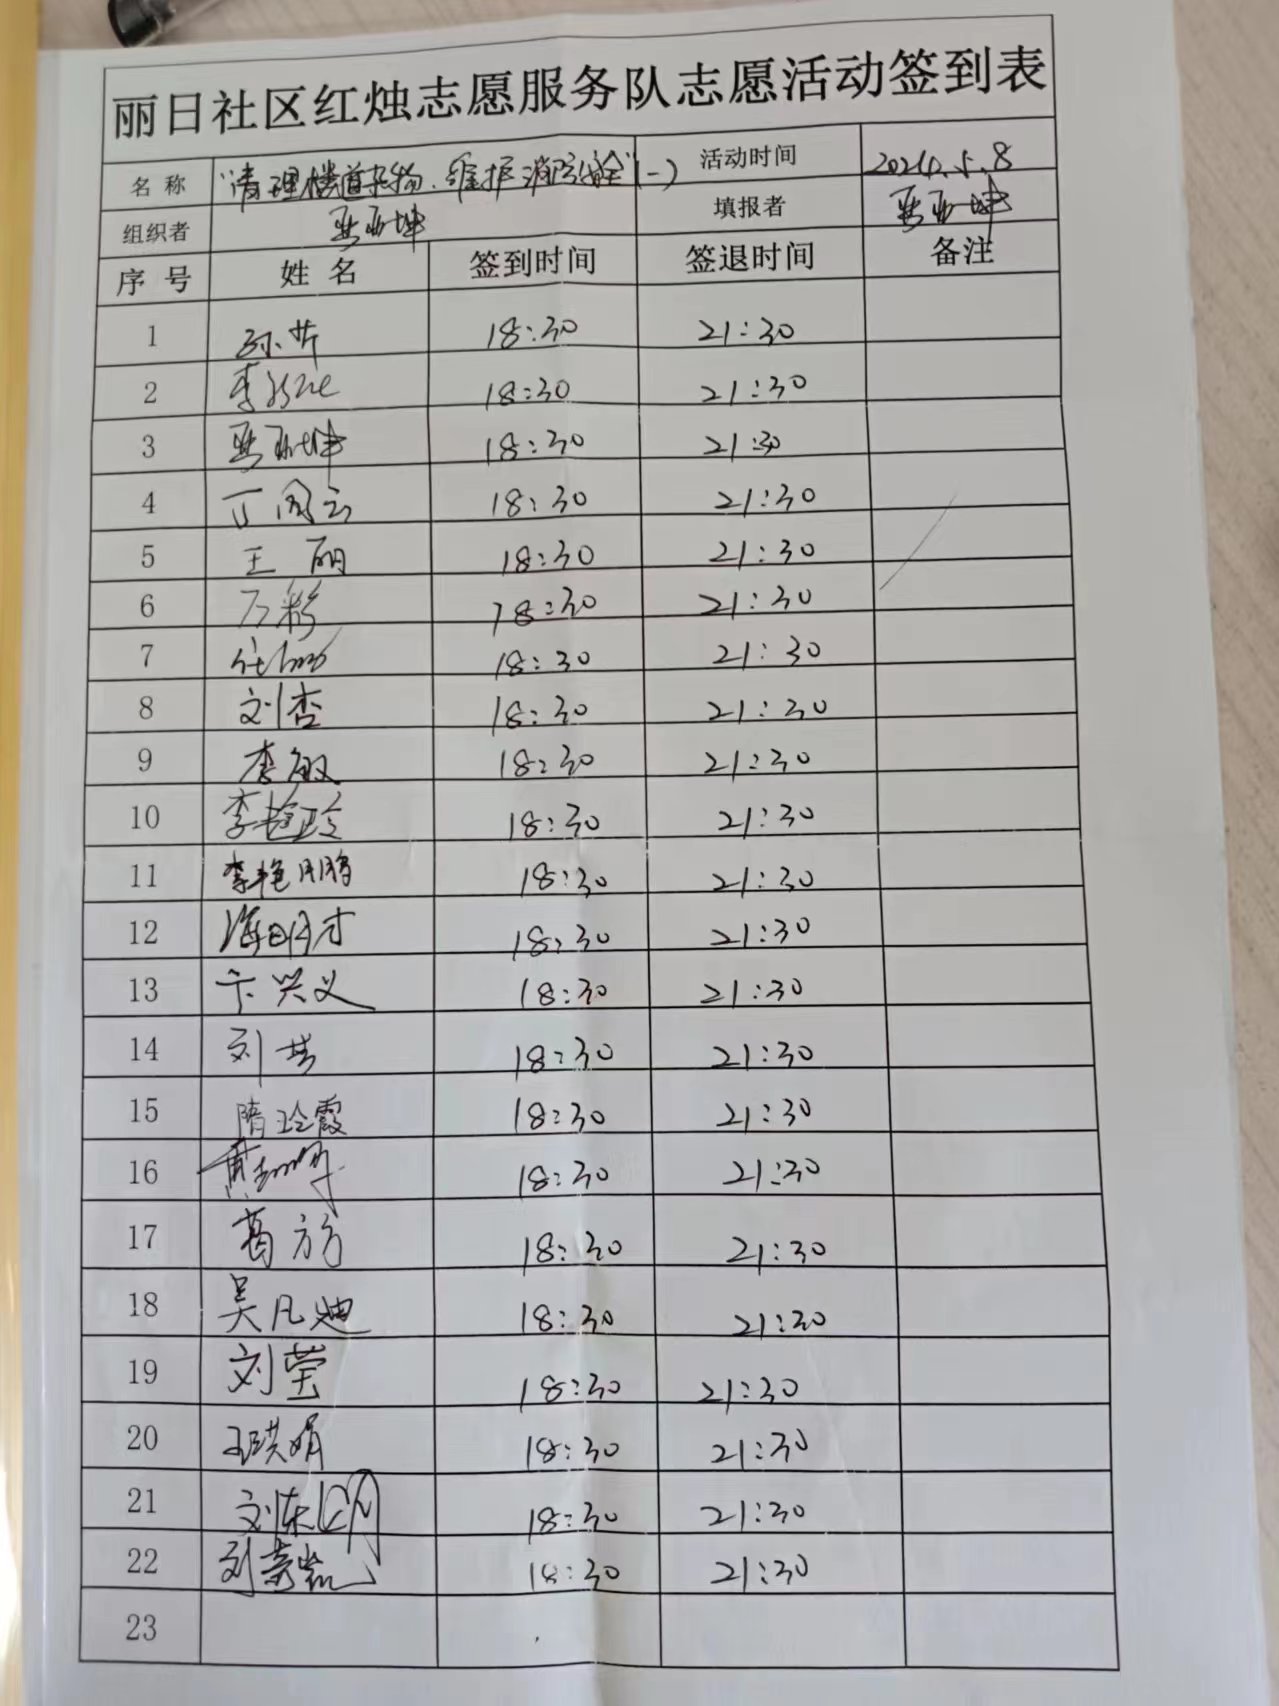 丽日社区红烛志愿服务队志愿活动签到表
名称 "清理楼道杂物、维护消防安全"(一) 活动时间 2024.5.8
组织者 亚坤 填报者 亚坤
序号 姓名 签到时间 签退时间 备注
1 孙芹 18:30 21:30
2 李 18:30 21:30
3 亚坤 18:30 21:30
4 丁周云 18:30 21:30
5 王丽 18:30 21:30
6 万彩 18:30 21:30
7 任 18:30 21:30
8 刘杏 18:30 21:30
9 李敏 18:30 21:30
10 李艳玲 18:30 21:30
11 李艳鹏 18:30 21:30
12 海明才 18:30 21:30
13 卞兴义 18:30 21:30
14 刘 18:30 21:30
15 隋玲霞 18:30 21:30
16 黄 18:30 21:30
17 葛方 18:30 21:30
18 吴凡迪 18:30 21:30
19 刘莹 18:30 21:30
20 王洪娟 18:30 21:30
21 刘东明 18:30 21:30
22 刘 18:30 21:30
23